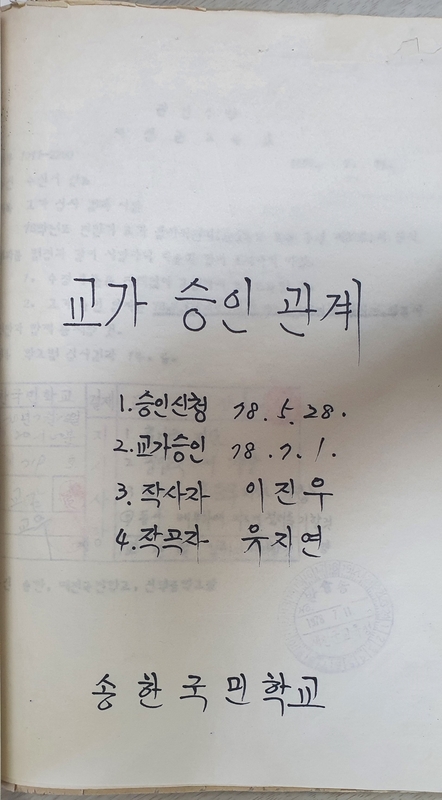 교가 승인 관계
1. 승인신청 78. 5. 28.
2. 교가승인 78. 7. 1.
3. 작사자 이진우
4. 작곡자 유지연
송한국민학교